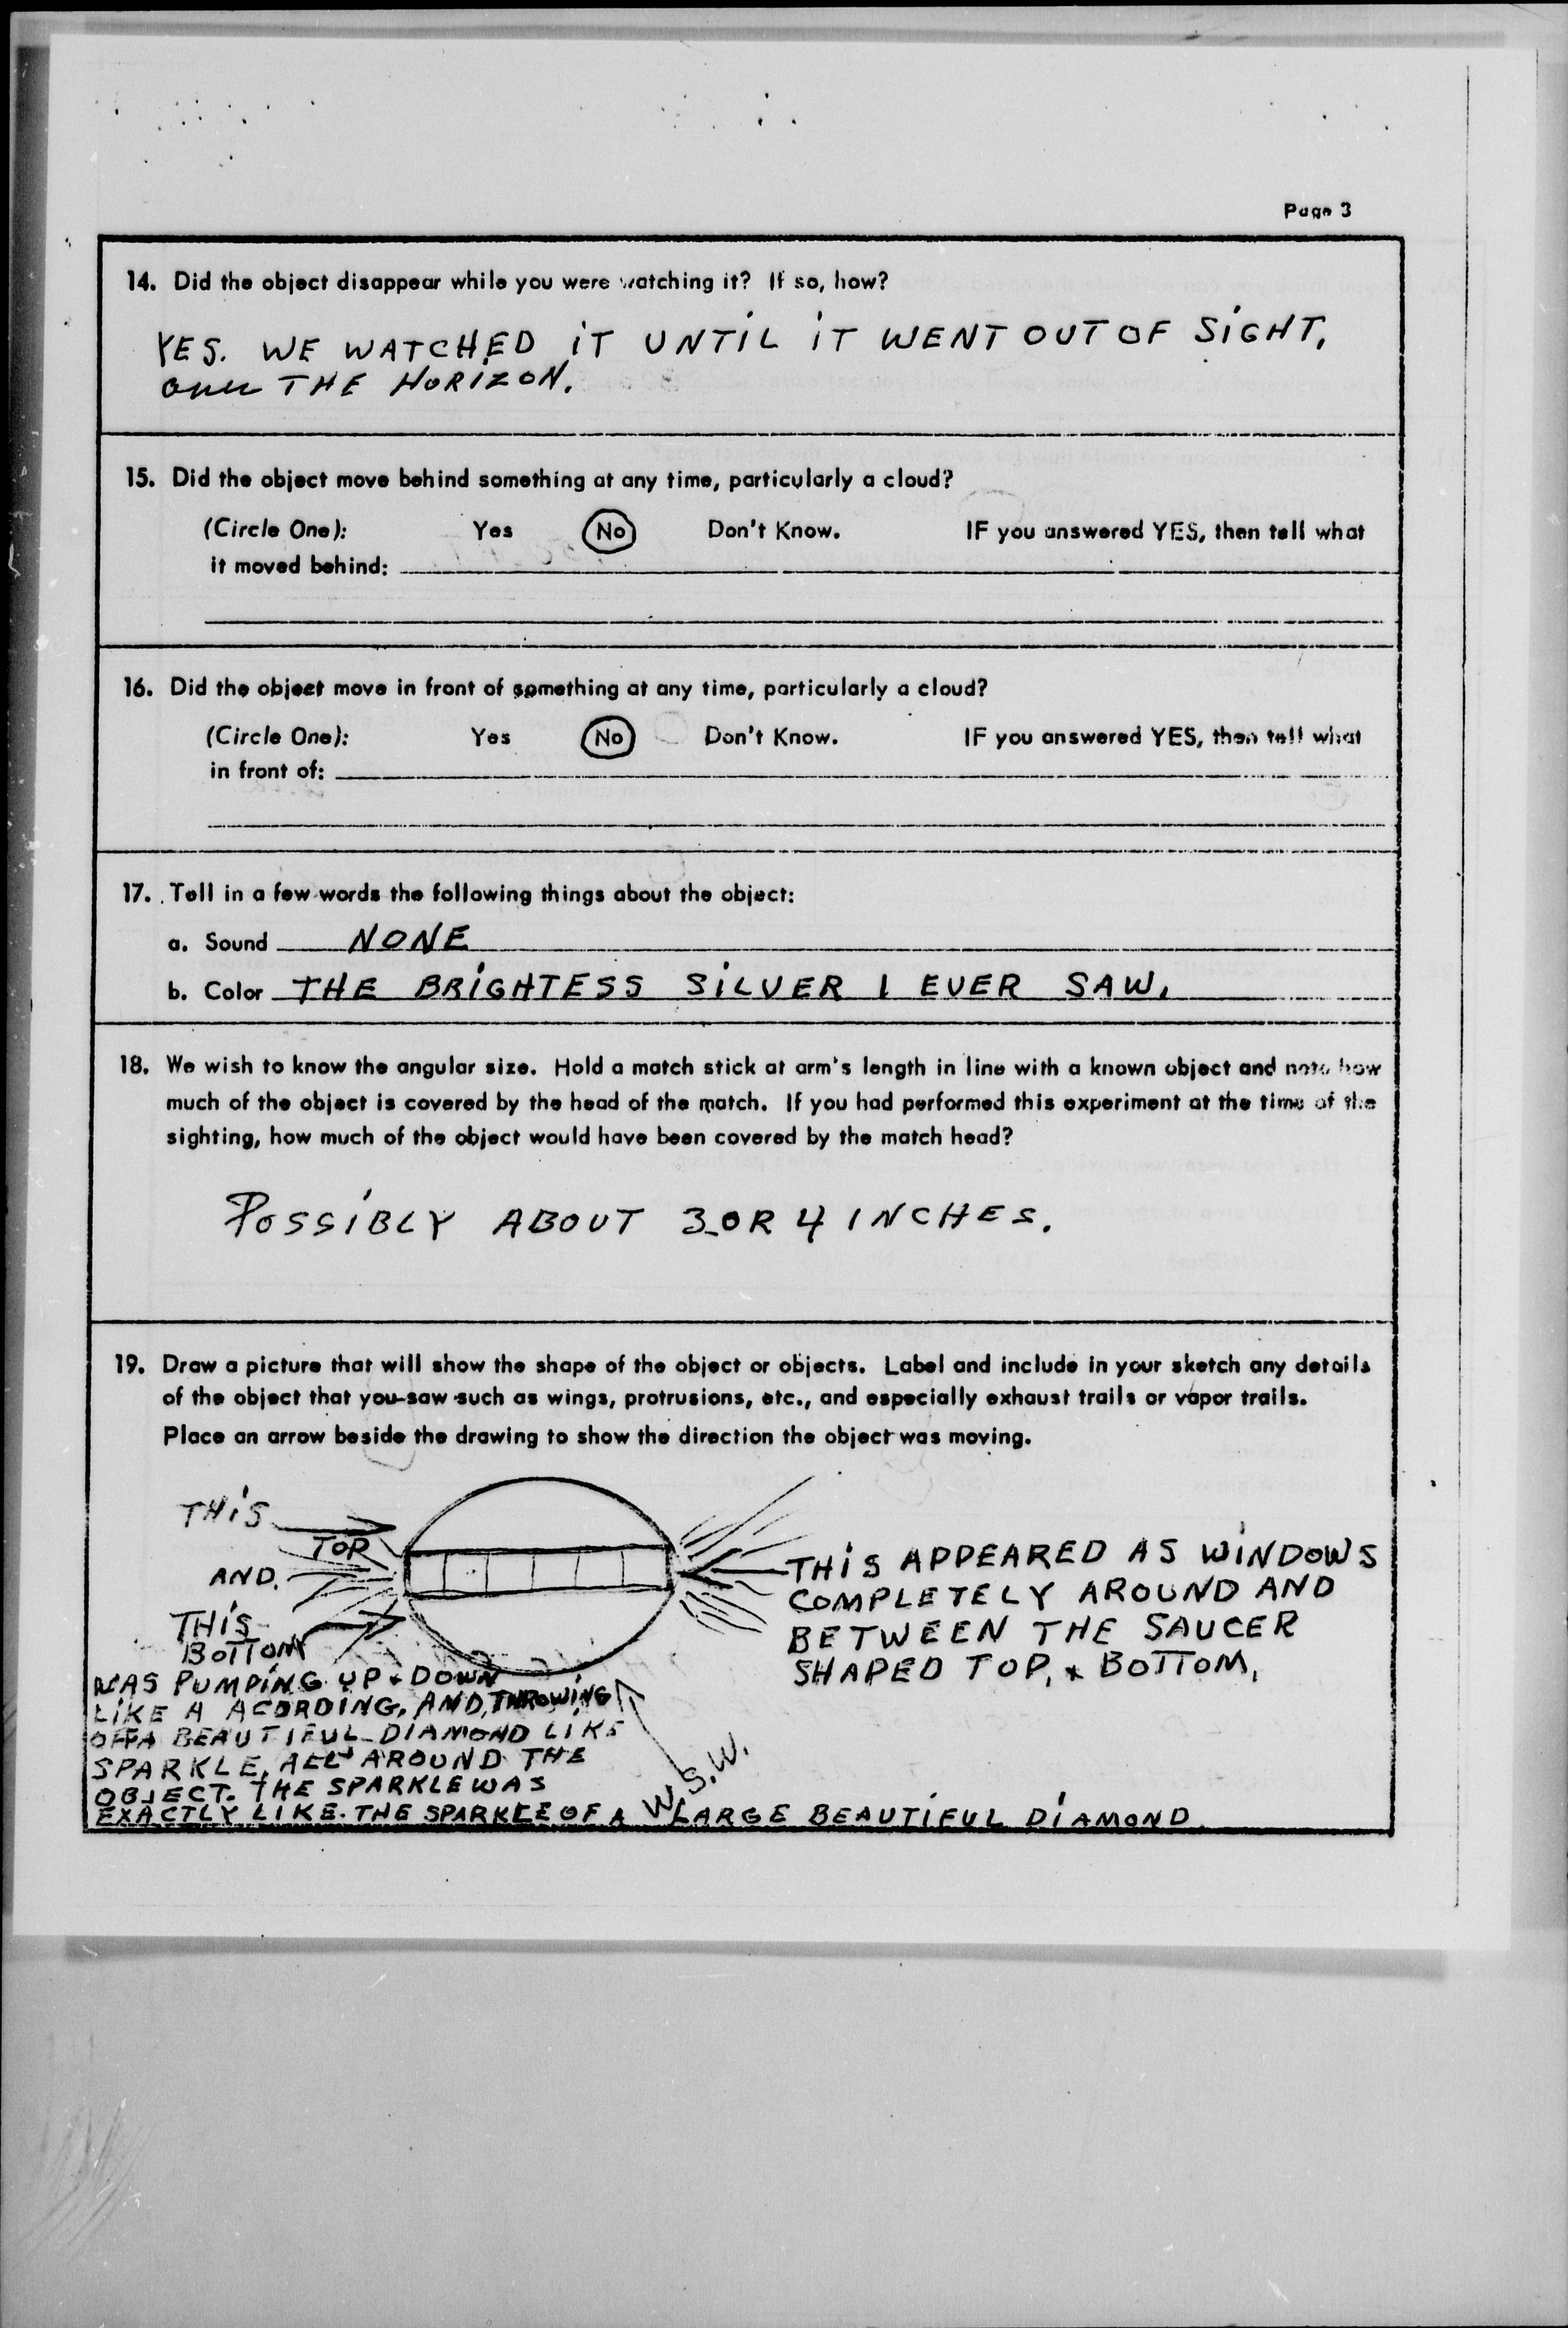 Page 3
14. Did the object disappear while you were watching it? If so, how?
YES. WE WATCHED iT UNTiL iT WENT OUT OF SiGHT,
over THE HORIZON.
15. Did the object move behind something at any time, particularly a cloud?
(Circle One): Yes No Don't Know. IF you answered YES, then tell what
it moved behind:
16. Did the object move in front of something at any time, particularly a cloud?
(Circle One): Yes No Don't Know. IF you answered YES, then tell what
in front of:
17. Tell in a few words the following things about the object:
a. Sound NONE
b. Color THE BRiGHTESS SiLVER I EVER SAW.
18. We wish to know the angular size. Hold a match stick at arm's length in line with a known object and note how
much of the object is covered by the head of the match. If you had performed this experiment at the time of the
sighting, how much of the object would have been covered by the match head?
POSSiBLY ABOUT 3 OR 4 INCHES.
19. Draw a picture that will show the shape of the object or objects. Label and include in your sketch any details
of the object that you saw such as wings, protrusions, etc., and especially exhaust trails or vapor trails.
Place an arrow beside the drawing to show the direction the object was moving.
THiS
TOP
AND.
THiS
BOTTOM
WAS PUMPiNG UP & DOWN
LiKE A ACORDING, AND, THROWiNG
OFF A BEAUTIFUL DIAMOND LIKE
SPARKLE, ALL AROUND THE
OBJECT. THE SPARKLE WAS
EXACTLY LIKE. THE SPARKLE OF A LARGE BEAUTiFUL DiAMOND
W.S.W.
THiS APPEARED AS WiNDOWS
COMPLETELY AROUND AND
BETWEEN THE SAUCER
SHAPED TOP, & BOTTOM,